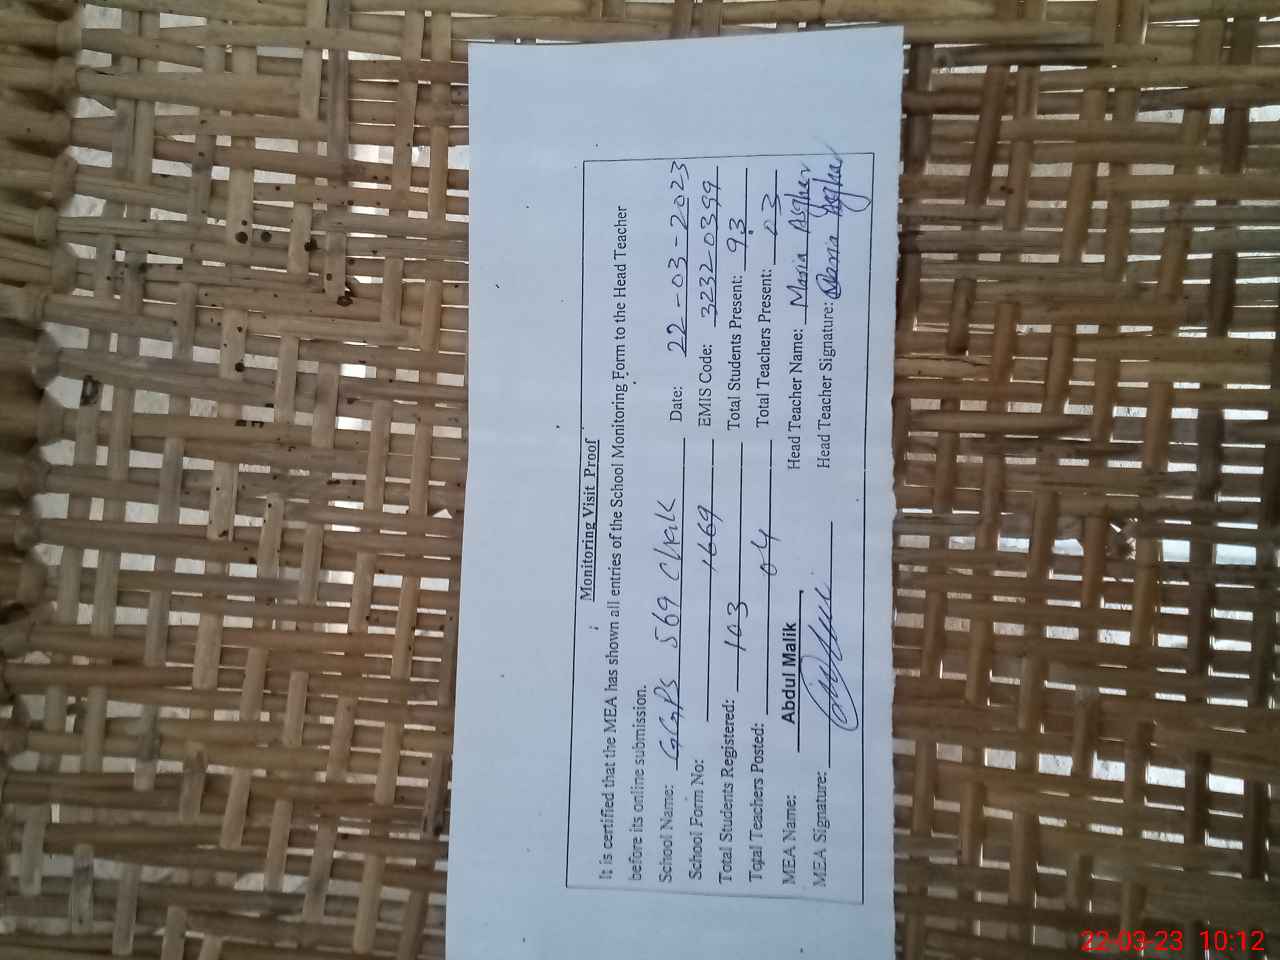 Monitoring Visit Proof
It is certified that the MEA has shown all entries of the School Monitoring Form to the Head Teacher
before its online submission.
School Name: GGPS 569 Chak Date: 22-03-2023
School Form No: 1669 EMIS Code: 32320399
Total Students Registered: 103 Total Students Present: 93
Total Teachers Posted: 04 Total Teachers Present: 03
MEA Name: Abdul Malik Head Teacher Name: Maria Asgher
MEA Signature: Head Teacher Signature: Maria Asgher
22-03-23 10:12